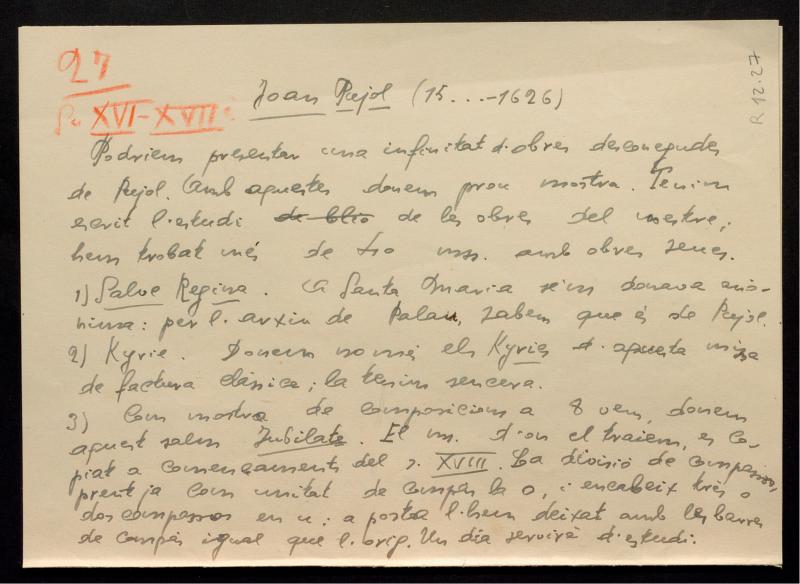 27
R 12.27
S. XVI-XVII
Joan Pujol (15...-1626)
Podriem presentar una infinitat d'obres desconegudes
de Pujol. Amb aquestes donem prou mostra. Tenim
escrit l'estudi de les obres del mestre;
hem trobat més de mss. amb obres seues.
1) Salve Regina. A Santa Maria se'ns donava anò-
nima: per l'arxiu de Palau, sabem que és de Pujol.
2) Kyrie. Donem només els Kyries d'aquesta missa
de factura clàsica; la tenim sencera.
3) Com mostra de composicions a 8 veus, donem
aquest salm Jubilate. El ms. d'on el traiem, es co-
piat a començaments del s. XVIII. La divisió de compassos,
prent ja com unitat de compàs la o, i encabeix tres o
dos compassos en u; a posta l'hem deixat amb les barres
de compàs igual que l'orig. Un dia servirà d'estudi.